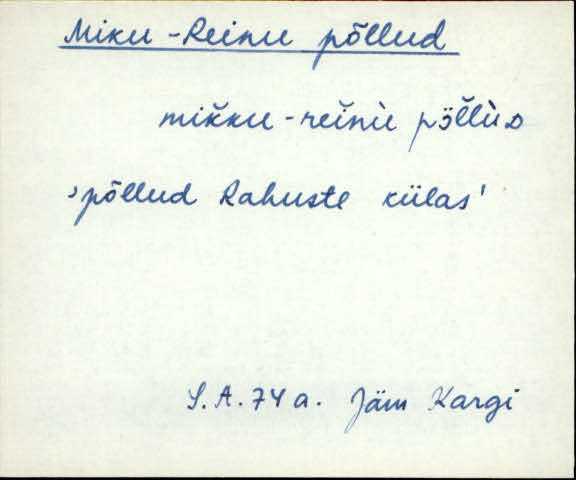 Miku-Reinu põllud
mikku-reinu põllud
'põllud Rahuste külas'
S.A.74 a. Jäm Kargi